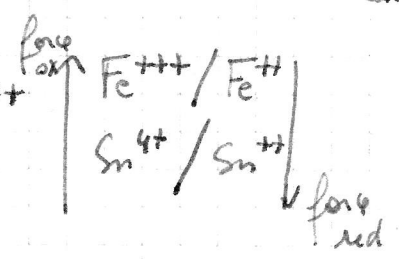 force
ox
+ Fe+++ / Fe++
Sn4+ / Sn++
force
red